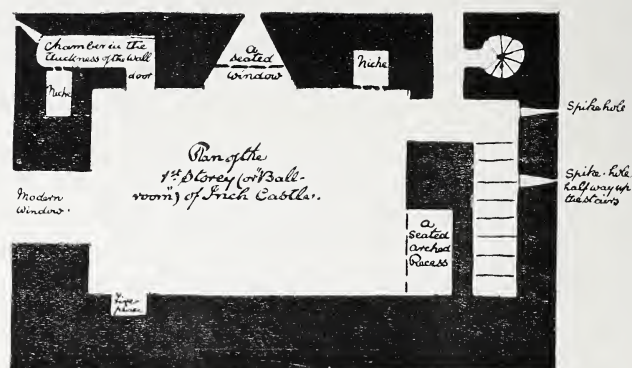 Chamber in the
thickness of the Wall
door
Niche
A
seated
window
Niche
Spike hole
Spike-hole
half way up
the stairs
Plan of the
1st Storey (or "Ball-
room") of Inch Castle.
Modern
Window.
A
seated
arched
Recess
fire-
place